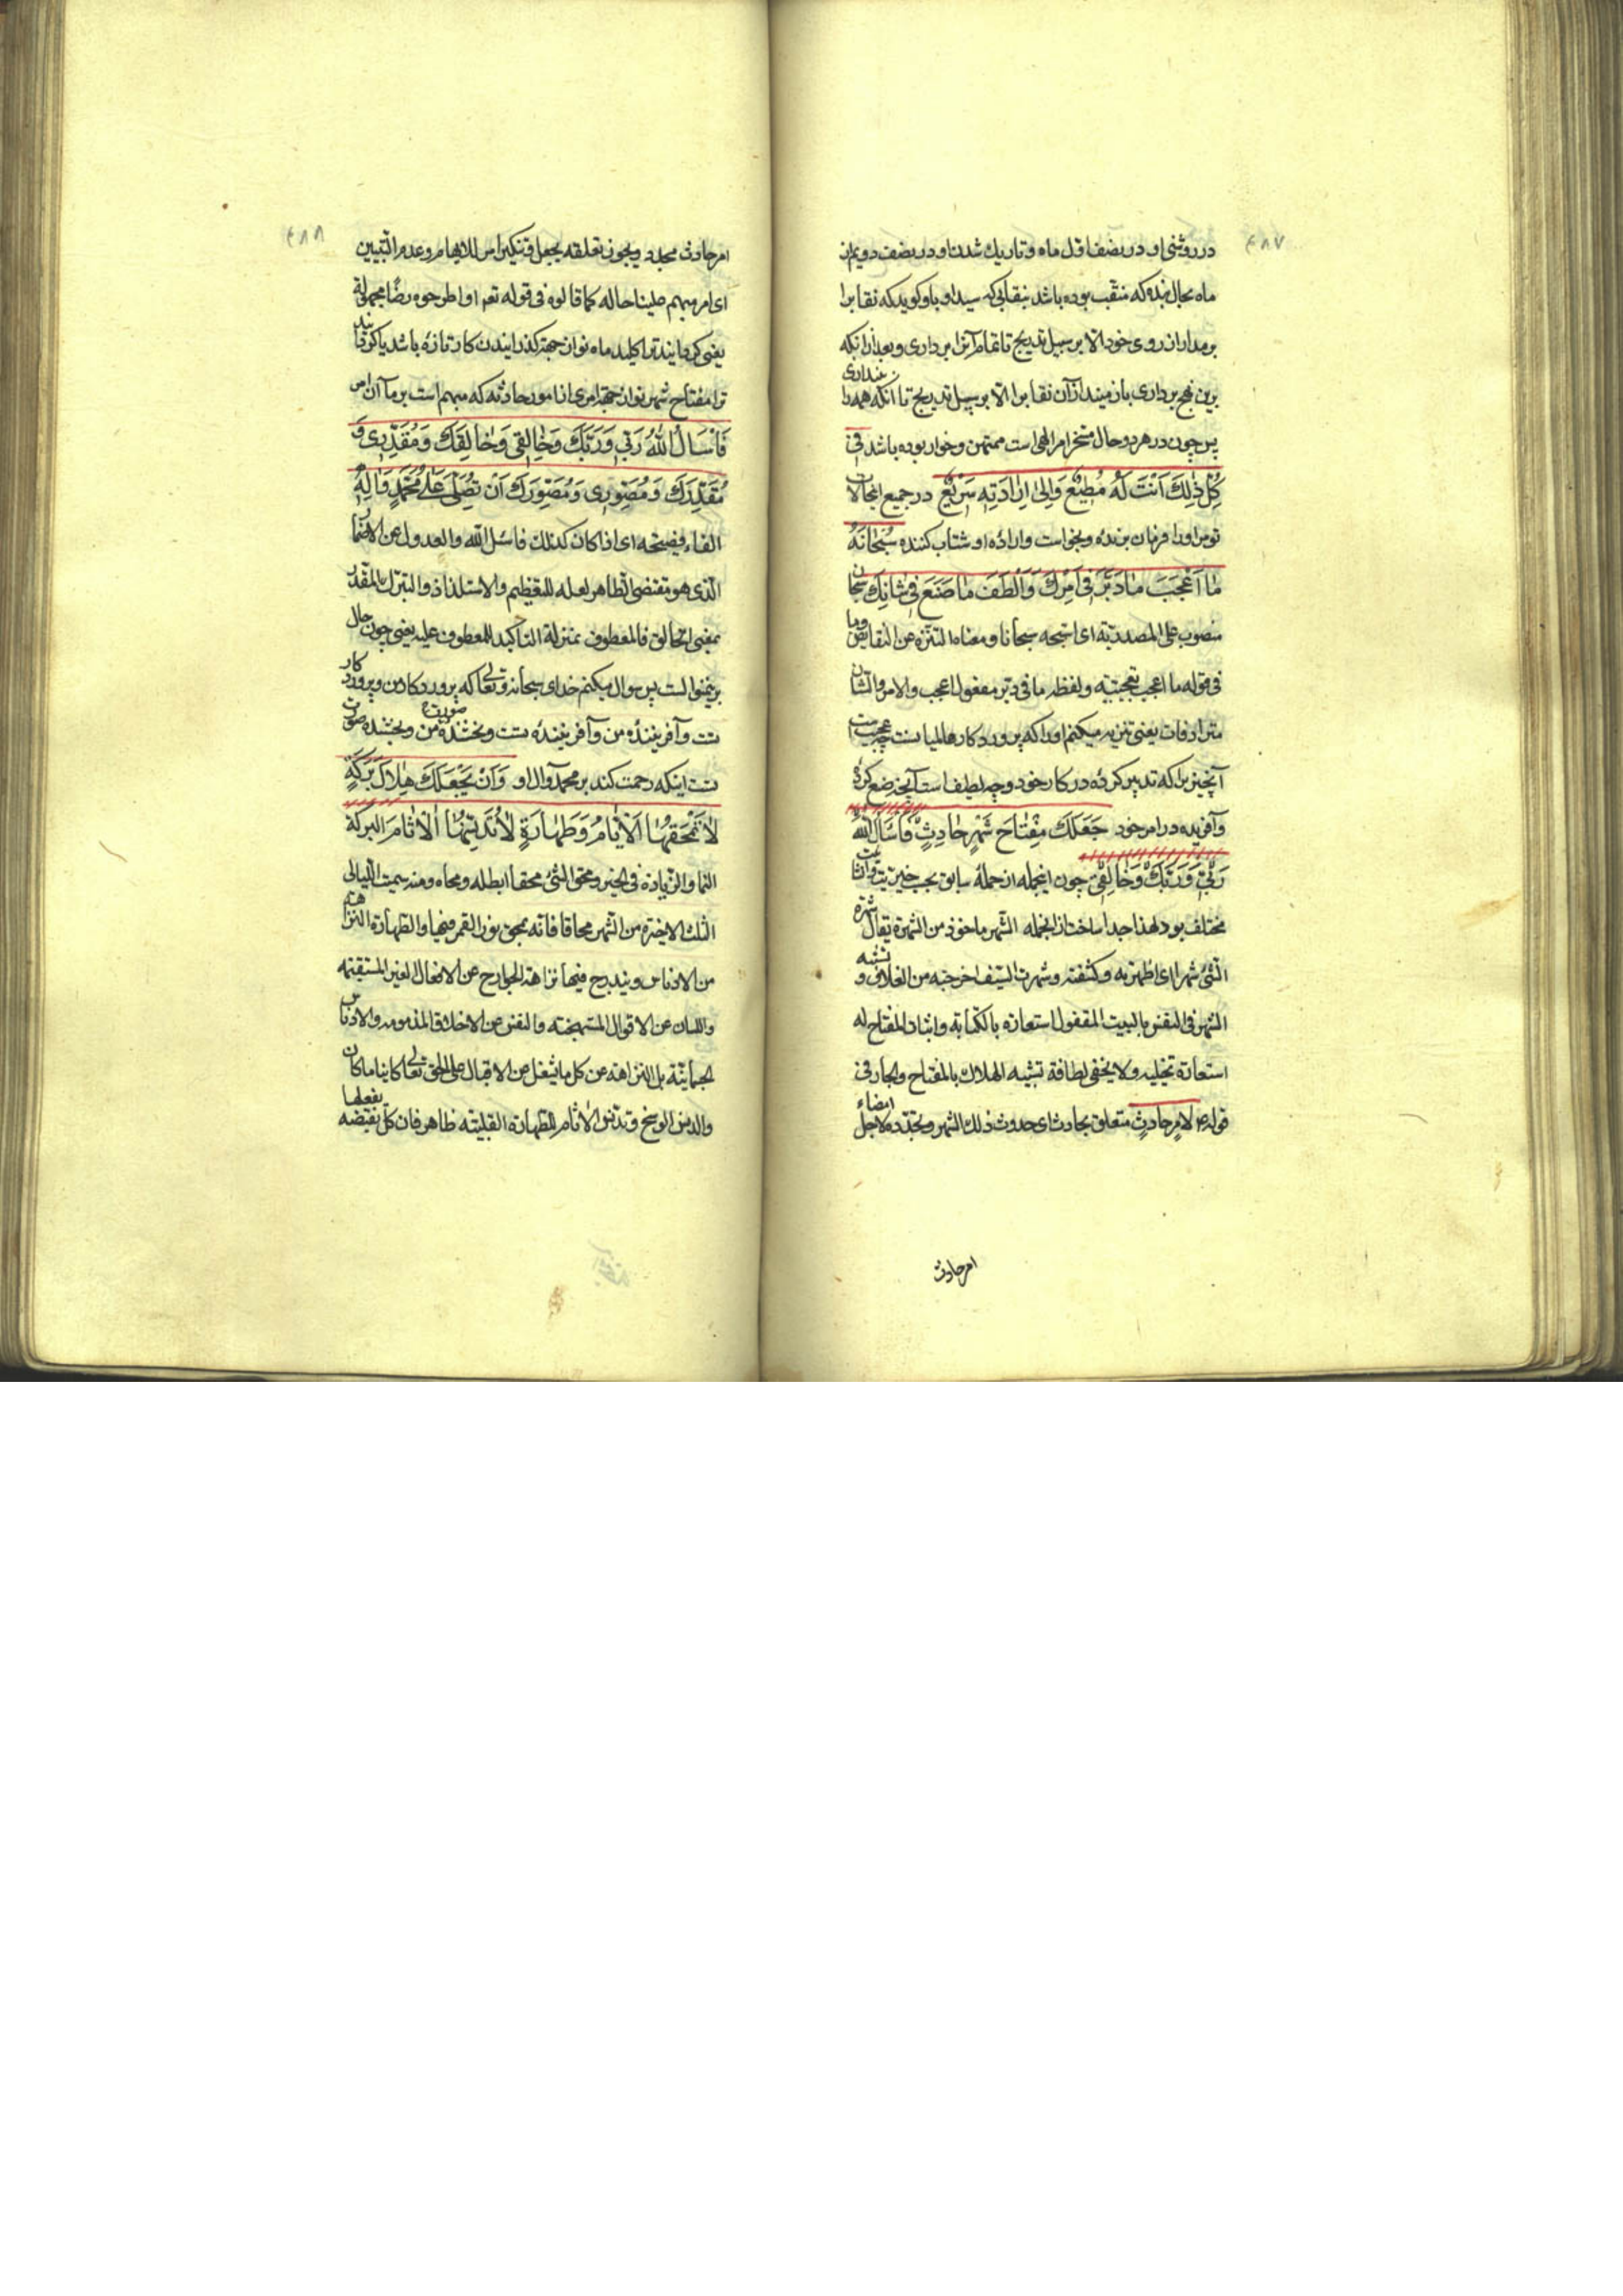 ۴۸۷
در روشنی او در نصف اول ماه و تاریك شدن او در نصف دویم از
ماه بحال بنده که منقب بوده باشد بنقابی که سید او باو کوید که نقاب را
بر مدار از روی خود الا بر سبیل تدریج تا تمام آنرا برداری و بعد از آنکه
برین نهج برداری باز میندازآن نقاب را الا بر سبیل تدریج تا آنکه همه را بیندازی
پس چون در هر دو حال مسخر امر الهی است ممتهن و خوار بوده باشد فی
كُلِّ ذٰلِكَ اَنْتَ لَهُ مُطِيْعٌ وَاِلىٰ اِرٰادَتِهِ سَرِيْعٌ در جمیع اینحالات
تو مر اورا فرمان برنده و بخواست و ارادهٔ او شتاب کننده سُبْحٰانَهُ
مٰا اَعْجَبَ مٰا دَبَّرَ فِى اَمْرِكَ وَاَلْطَفَ مٰا صَنَعَ فِى شٰانِكَ سبحان
منصوب علی المصدریّة ای اسبّحه سبحانا و معناه التنزّه عن النقایص و ما
فی قوله ما اعجب تعجبیّه و لفظه ما فی دبّر مفعول اعجب والامر والشان
مترادفان یعنی تنزیه میکنم اورا که پرورد کار عالمیانست چه عجیب است
آنچیز یرا که تدبیر کرده در کار خود و چه لطیف است آنچه صنع کرده
و آفریده در امر خود جَعَلَكَ مِفْتٰاحَ شَهْرٍ حٰادِثٍ فَاَسْاَلُ اللّٰهَ
رَبِّى وَرَبَّكَ وَخٰالِقِى چون اینجمله از جملهٔ سابق بحسب خبریّت و انشائیت
مختلف بود لهذا جدا ساخت از انجمله الشهر ماخوذ من الشهرة یقال شهرت
الشیٔ شهرا ای اظهرته و کشفته و شهرت السیف اخرجته من الغلاف و تشبیه
الشهر فی النفس بالبیت المقفول استعارة بالکنایة و اثبات المفتاح له
استعارة تخییلیه ولا یخفی لطافة تشبیه الهلال بالمفتاح والجار فی
قوله ع لامر حادث متعلق بحادث ای حدوث ذلك الشهر و تجدّده لاجل امضاء
امر حادث
۴۸۸
امر حادث مجدد و یجوز تعلقه بجعل و تنکیر امر للابهام و عدم التبیین
ای امر مبهم علینا حاله کما قالوه فی قوله تعم او اطرحوه ارضًا مجهولة
یعنی کردانیند ترا کلید ماه نو از جهة کذرانیدن کار تازه باشد یا کردانید
ترا مفتاح شهر نو از جهة امری از امور حادثه که مبهم است بر ما آن امر
فَاَسْاَلُ اللّٰهَ رَبِّى وَرَبَّكَ وَخٰالِقِى وَخٰالِقَكَ وَمُقَدِّرِى وَ
مُقَدِّرَكَ وَمُصَوِّرِى وَمُصَوِّرَكَ اَنْ تُصَلِّىَ عَلىٰ مُحَمَّدٍ وَاٰلِهِ
الفاء فصیحه ای اذا کان کذلك فاسئل اللّه والعدول عن الاضمار
الّذی هو مقتضی الظاهر لعله للتعظیم والاستلذاذ والتبرّك والمقدّر
بمعنی الخالق فالمعطوف بمنزلة التاکید للمعطوف علیه یعنی چون حال
برینمنوالست پس سوال میکنم خدای سبحانه و تعالی که پرورد کار من و پرورد کار
تست و آفرینندهٔ من و آفرینندهٔ تست و بخشندهٔ صورت من و بخشنده صورت
تست اینکه رحمت کند بر محمد و آل او وَاَنْ يَجْعَلَكَ هِلٰالَ بَرَكَةٍ
لٰا تَمْحَقُهَا الْاَيّٰامُ وَطَهٰارَةٍ لٰا تُدَنِّسُهَا الْاٰثٰامُ البرکة
النما والزیادة فی الخیر و محق الشیٔ محقا ابطله و محاه و منه سمیت اللیالی
الثلث الاخیرة من الشهر محاقا فانّه یمحق نور القمر فیها والطهارة النزاهة
من الادناس و یندرج فیها نزاهة الجوارح عن الافعال الغیر المستقیمه
واللسان عن الاقوال المستهجنه والنفس عن الاخلاق المذمومه والادناس
الجسمانیّة بل النزاهه عن کل ما یشغل عن الاقبال علی الحق تعالی کاینا ما کان
والدنس الوسخ و تدنیس الاثام للطهارة القلبیّه ظاهر فان کل نقیضه یفعلها